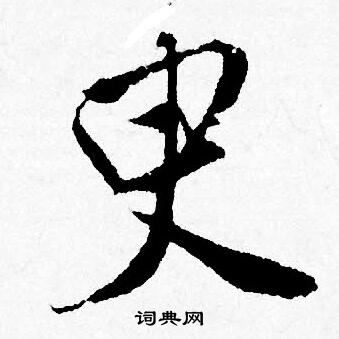 史
词典网